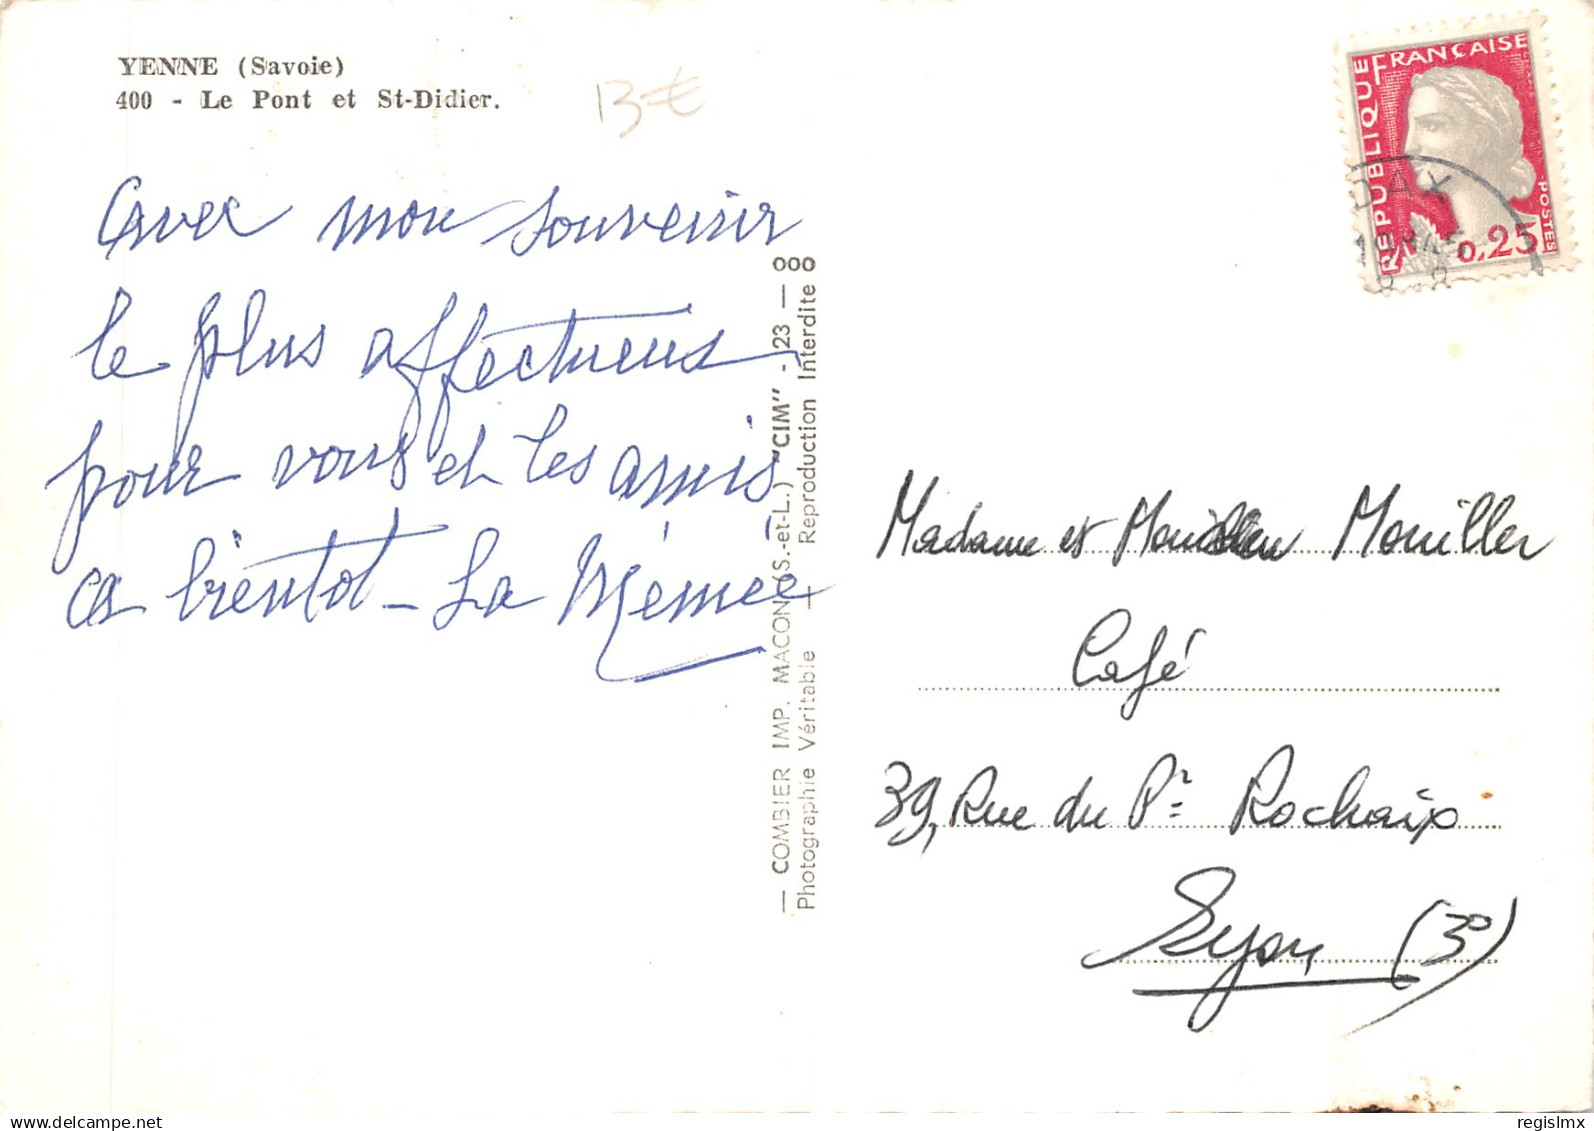 YENNE (Savoie)
400 - Le Pont et St-Didier.
13 €
Avec mon souvenir
le plus affectueus
pour vous et les amis
a bientot - La Mémée
— COMBIER IMP. MACON (S.-et-L.) "CIM" - 23 — 000
Photographie Véritable — Reproduction Interdite
RÉPUBLIQUE FRANÇAISE
POSTES
0,25
DAX
Madame et Monsieur Mouiller
Café
39, Rue du Pr Rochaix
Lyon (3°)
delcampe.net
regislmx